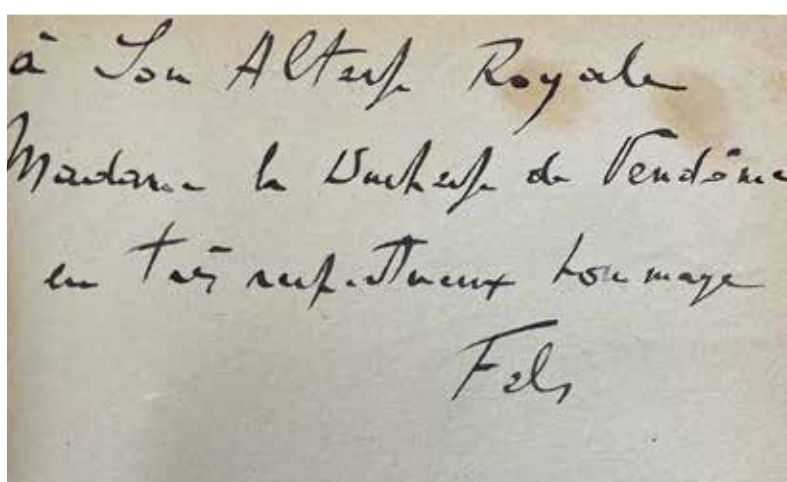 à Son Altesse Royale
Madame la Duchesse de Vendôme
en très respectueux hommage
Fels